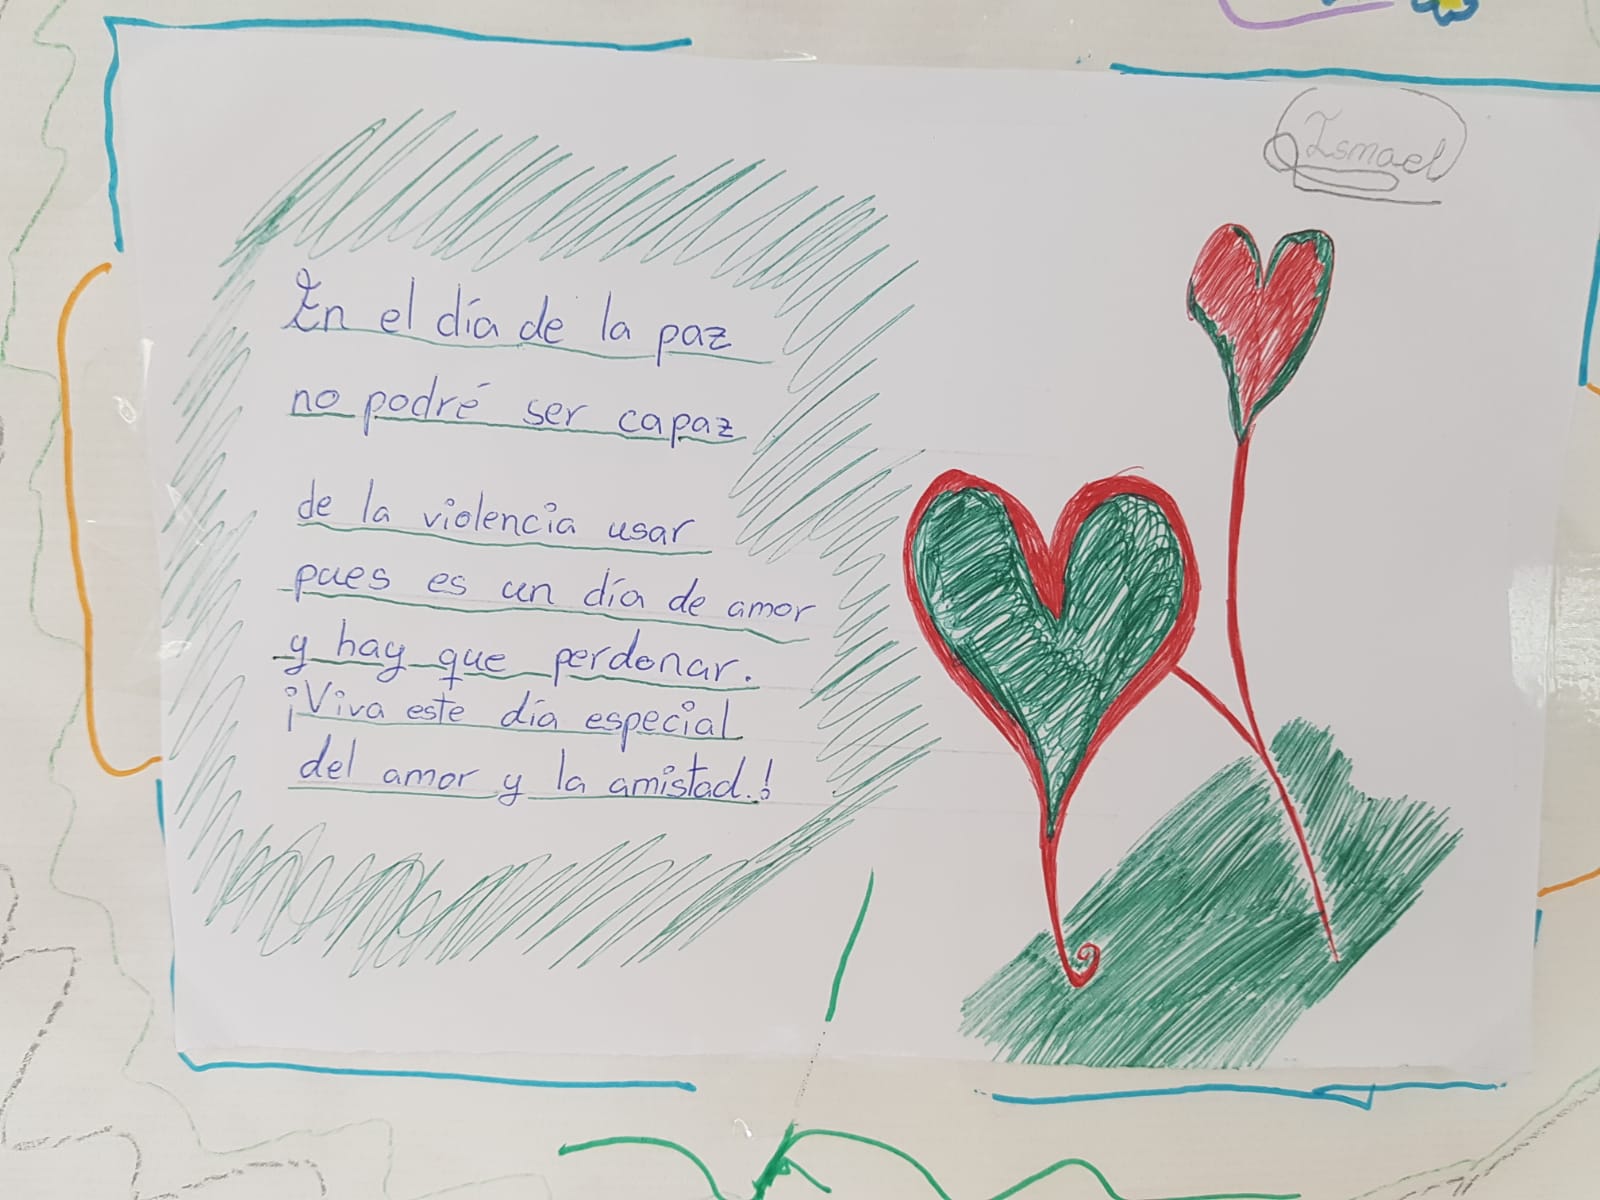 Ismael
En el día de la paz
no podré ser capaz
de la violencia usar
pues es un día de amor
y hay que perdonar.
¡Viva este día especial
del amor y la amistad.!